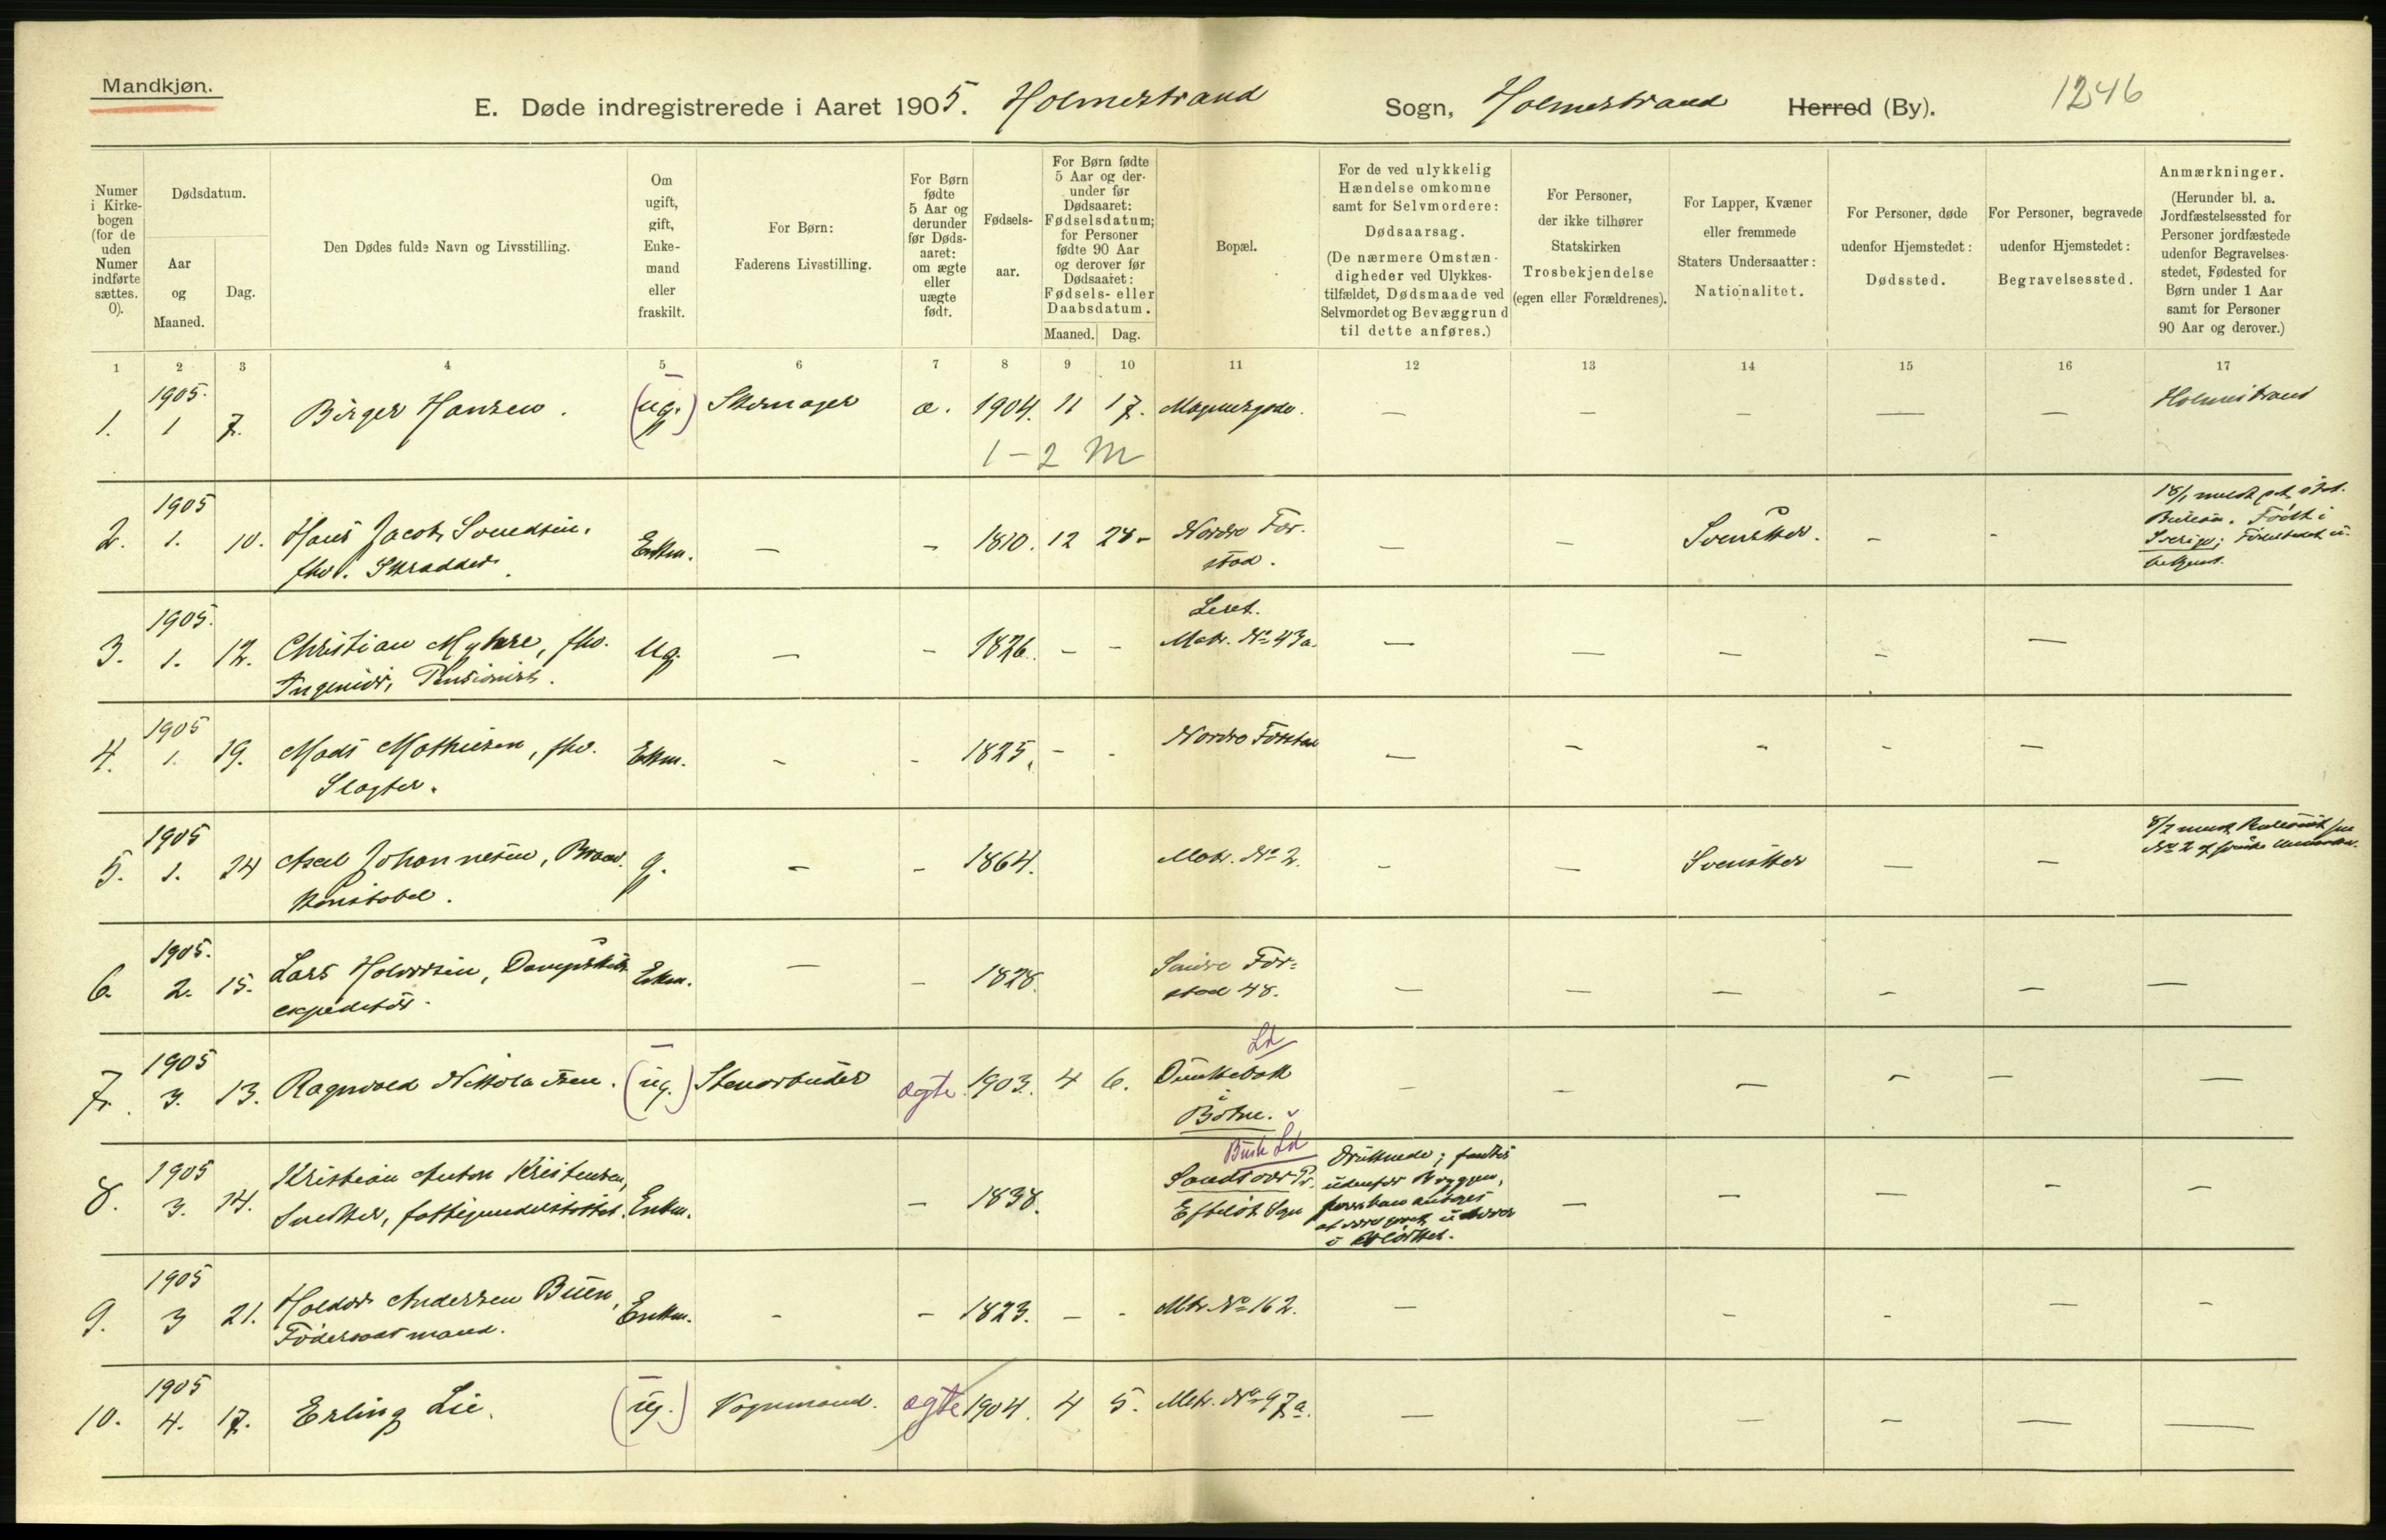 Mandkjøn.
E. Døde indregistrerede i Aaret 1905. Holmestrand Sogn, Holmestrand Herred (By). 1246
Numer i Kirke-bogen (for de uden Numer indførte sættes. 0).
Dødsdatum.
Aar og Maaned.
Dag.
Den Dødes fulde Navn og Livsstilling.
Om ugift, gift, Enke-mand eller fraskilt.
For Børn: Faderens Livsstilling.
For Børn fødte 5 Aar og derunder før Døds-aaret: om ægte eller uægte født.
Fødsels-aar.
For Børn fødte 5 Aar og der-under før Dødsaaret: Fødselsdatum; for Personer fødte 90 Aar og derover før Dødsaaret: Fødsels- eller Daabsdatum.
Maaned. Dag.
Bopæl.
For de ved ulykkelig Hændelse omkomne samt for Selvmordere: Dødsaarsag. (De nærmere Omstæn-digheder ved Ulykkes-tilfældet, Dødsmaade ved Selvmordet og Bevæggrund til dette anføres.)
For Personer, der ikke tilhører Statskirken Trosbekjendelse (egen eller Forældrenes).
For Lapper, Kvæner eller fremmede Staters Undersaatter: Nationalitet.
For Personer, døde udenfor Hjemstedet: Dødssted.
For Personer, begravede udenfor Hjemstedet: Begravelsessted.
Anmærkninger. (Herunder bl. a. Jordfæstelsessted for Personer jordfæstede udenfor Begravelses-stedet, Fødested for Børn under 1 Aar samt for Personer 90 Aar og derover.)
1 2 3 4 5 6 7 8 9 10 11 12 13 14 15 16 17
1. 1905. 1 7. Birger Hansen. (ug.) Skomager æ. 1904. 11 17. — — — — — Holmestrand
1-2 M
2. 1905 1. 10. Hans Jacob Svendsen, Enkm. — — 1810. 12 28- Nordre For-
fhv. Skrædder. stad. — — Svensker. - -
Født i
Sverige; Fødested u-
bekjendt.
3. 1905. 1. 12. Christian Myhre, fhv. Ug. — - 1826. - - Matr. No 43a. — — — - —
Ingeniør, Pensionist.
4. 1905 1. 19. Mads Mathiesen, fhv. Ekm. - - 1825. - - Nordre Forstad — - - - —
Slagter.
5. 1905 1. 24 Axel Johannesen, Brand- g. - - 1864. Matr. No 2. - — Svensker — —
konstabel.
6. 1905. 2. 15. Lars Halvorsen, Dampskibs- Enkm. — - 1828. Søndre For-
expeditør. stad 48. — — — - — —
7. 1905 3. 13. Ragnvald Nikolaisen. (ug.) Stenarbeider ægte. 1903. 4 6. Ld
i
Botne. - - — - — —
8. 1905 3. 14. Kristian Anton Kristensen, Busk Ld
Snekker, fattigunderstøttet. Enkm. - 1838. Sandsvær Pr.
Efteløt Sogn
Druknede; fandtes
udenfor Bryggen,
— — — - -
9. 1905 3 21. Haldor Andersen Buen, Enkm. - - 1823. - - Mtr. No 162. — - - — -
Føderaadsmand.
10. 1905 4. 17. Erling Lie. (ug.) Vognmand. ægte 1904. 4 5. Matr. No 97a. — — - — —